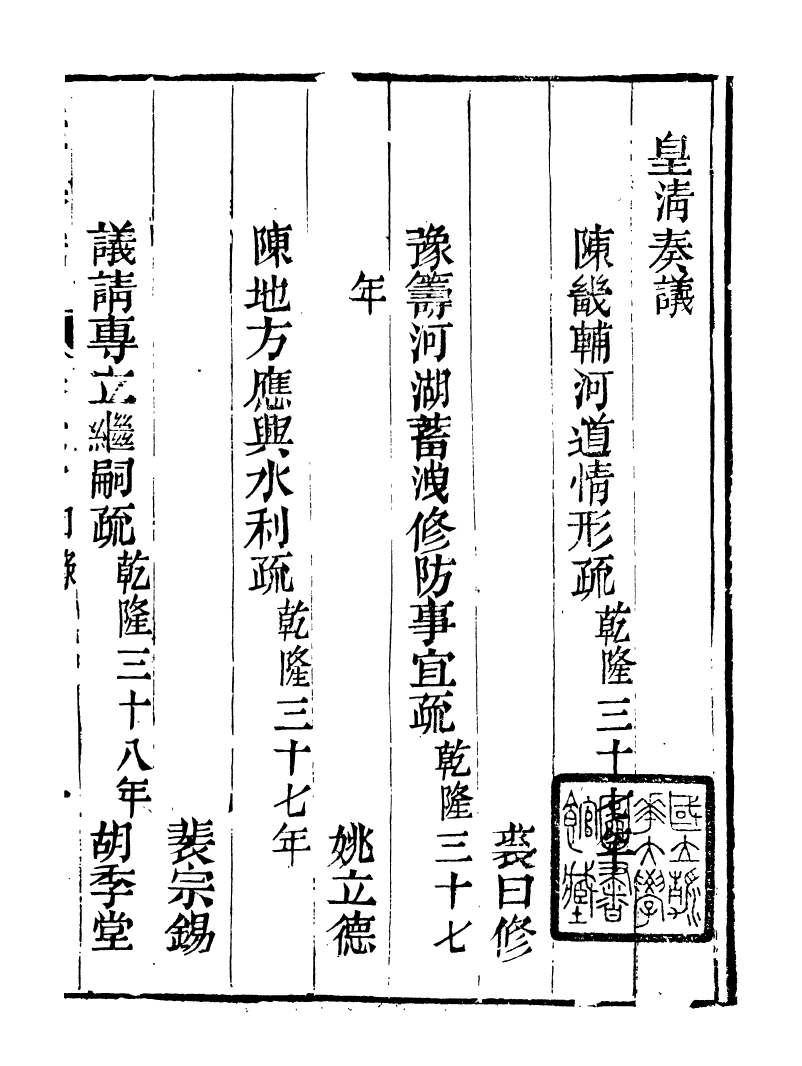 皇清奏議
陳畿輔河道情形疏乾隆三十七年
裘曰修
豫籌河湖蓄洩修防事宜疏乾隆三十七
年
姚立德
陳地方應興水利疏乾隆三十七年
裴宗錫
議請專立繼嗣疏乾隆三十八年 胡季堂
國立
大學
書
館藏